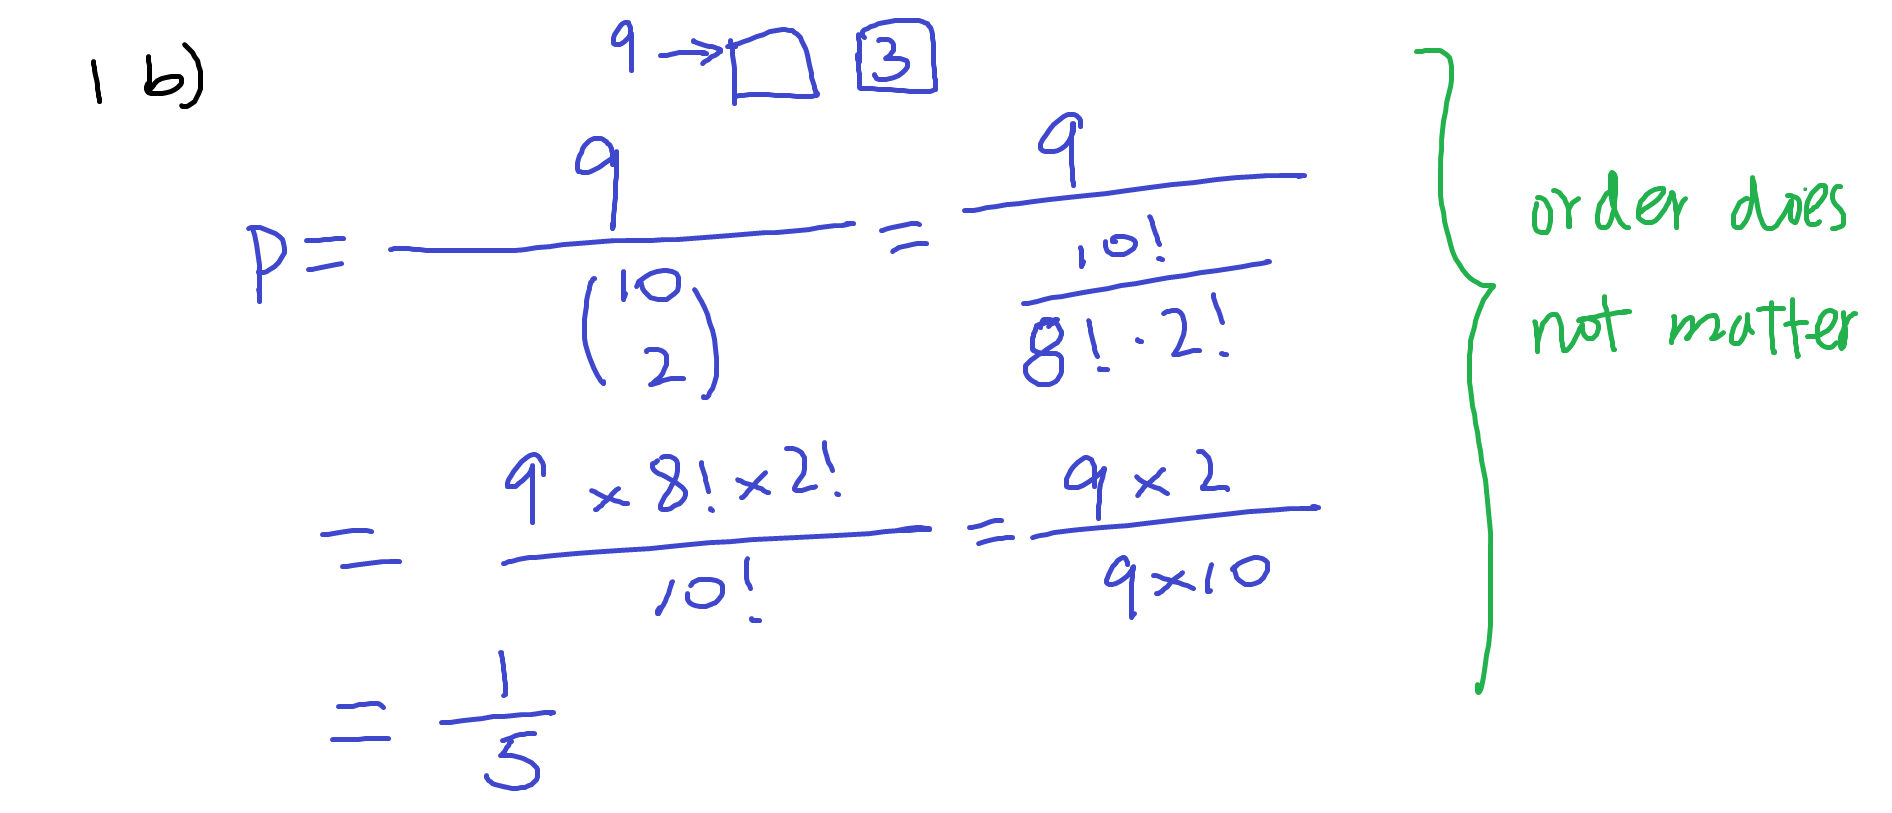 1 b)
9 → □ 3
P = 9 / (10 2) = 9 / (10! / 8! · 2!)
= 9 × 8! × 2! / 10! = 9 × 2 / 9 × 10
= 1 / 5
order does
not matter